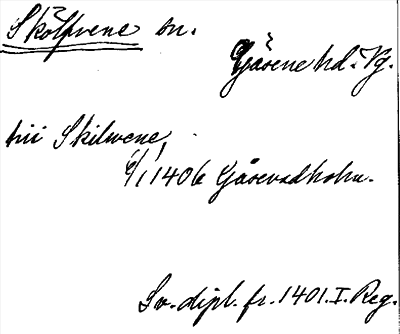 Skölfvene sn.
Gäsene hd. Vg.
hii Skilwene,
6/1 1406 Gäsevadholm.
Sv. dipl. fr. 1401. I. Reg.